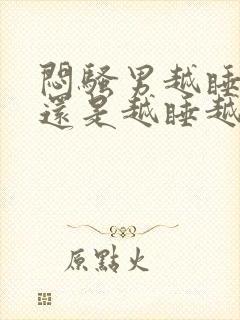 悶騷男越睡
還是越睡越
原點火